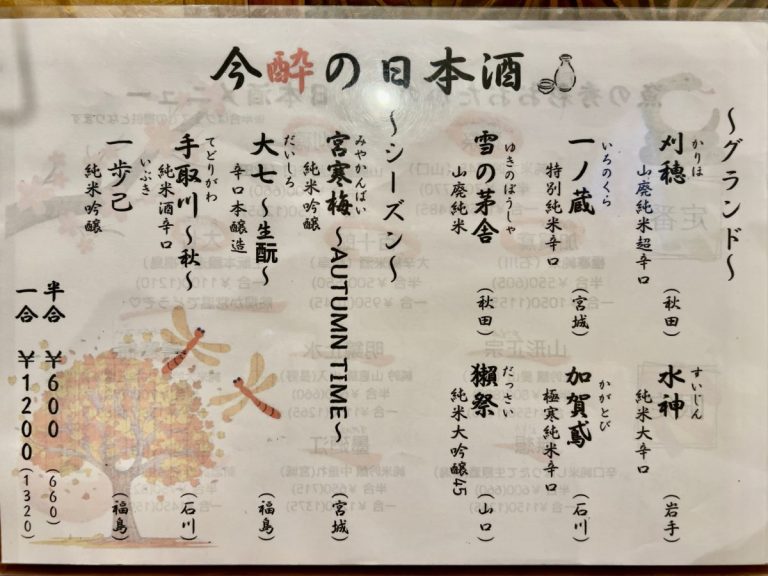 今酔の日本酒
～グランド～
かりほ
刈穂
山廃純米超辛口
(秋田)
すいじん
水神
純米大辛口
(岩手)
いろのくら
一ノ蔵
特別純米辛口
(宮城)
かがとび
加賀鳶
極寒純米辛口
(石川)
ゆきのぼうしゃ
雪の茅舎
山廃純米
(秋田)
だっさい
獺祭
純米大吟醸45
(山口)
～シーズン～
みやかんばい
宮寒梅～AUTUMN TIME～
純米吟醸
(宮城)
だいしろ
大七～生酛～
辛口本醸造
(福島)
てどりがわ
手取川～秋～
純米酒辛口
(石川)
いぶき
一歩己
純米吟醸
(福島)
半合 ¥600 (660)
一合 ¥1200 (1320)